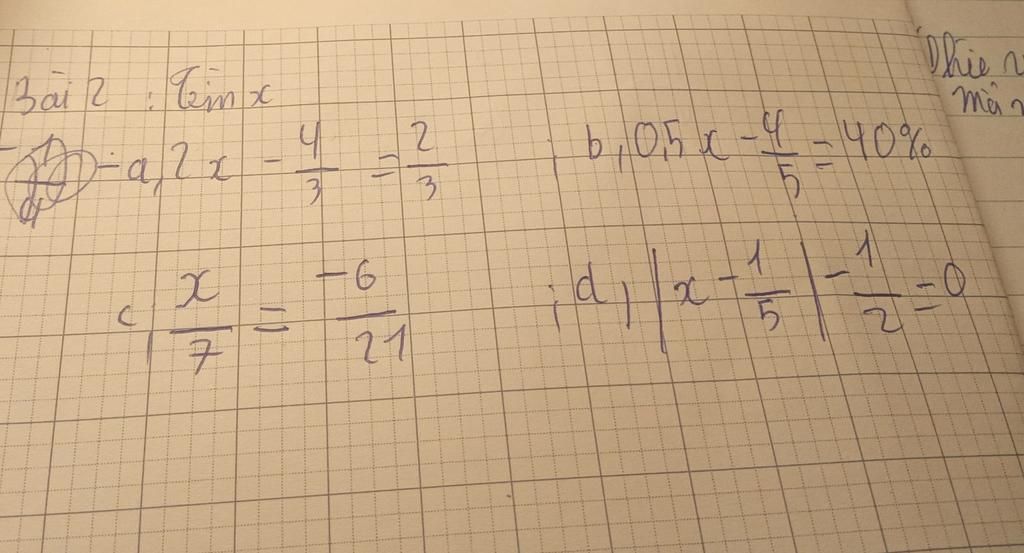 Bài 2 : Tìm x
- a, 2x - 4/3 = 2/3 ; b, 0,5x - 4/5 = 40%
c, x/7 = -6/21 ; d, |x - 1/5| - 1/2 = 0